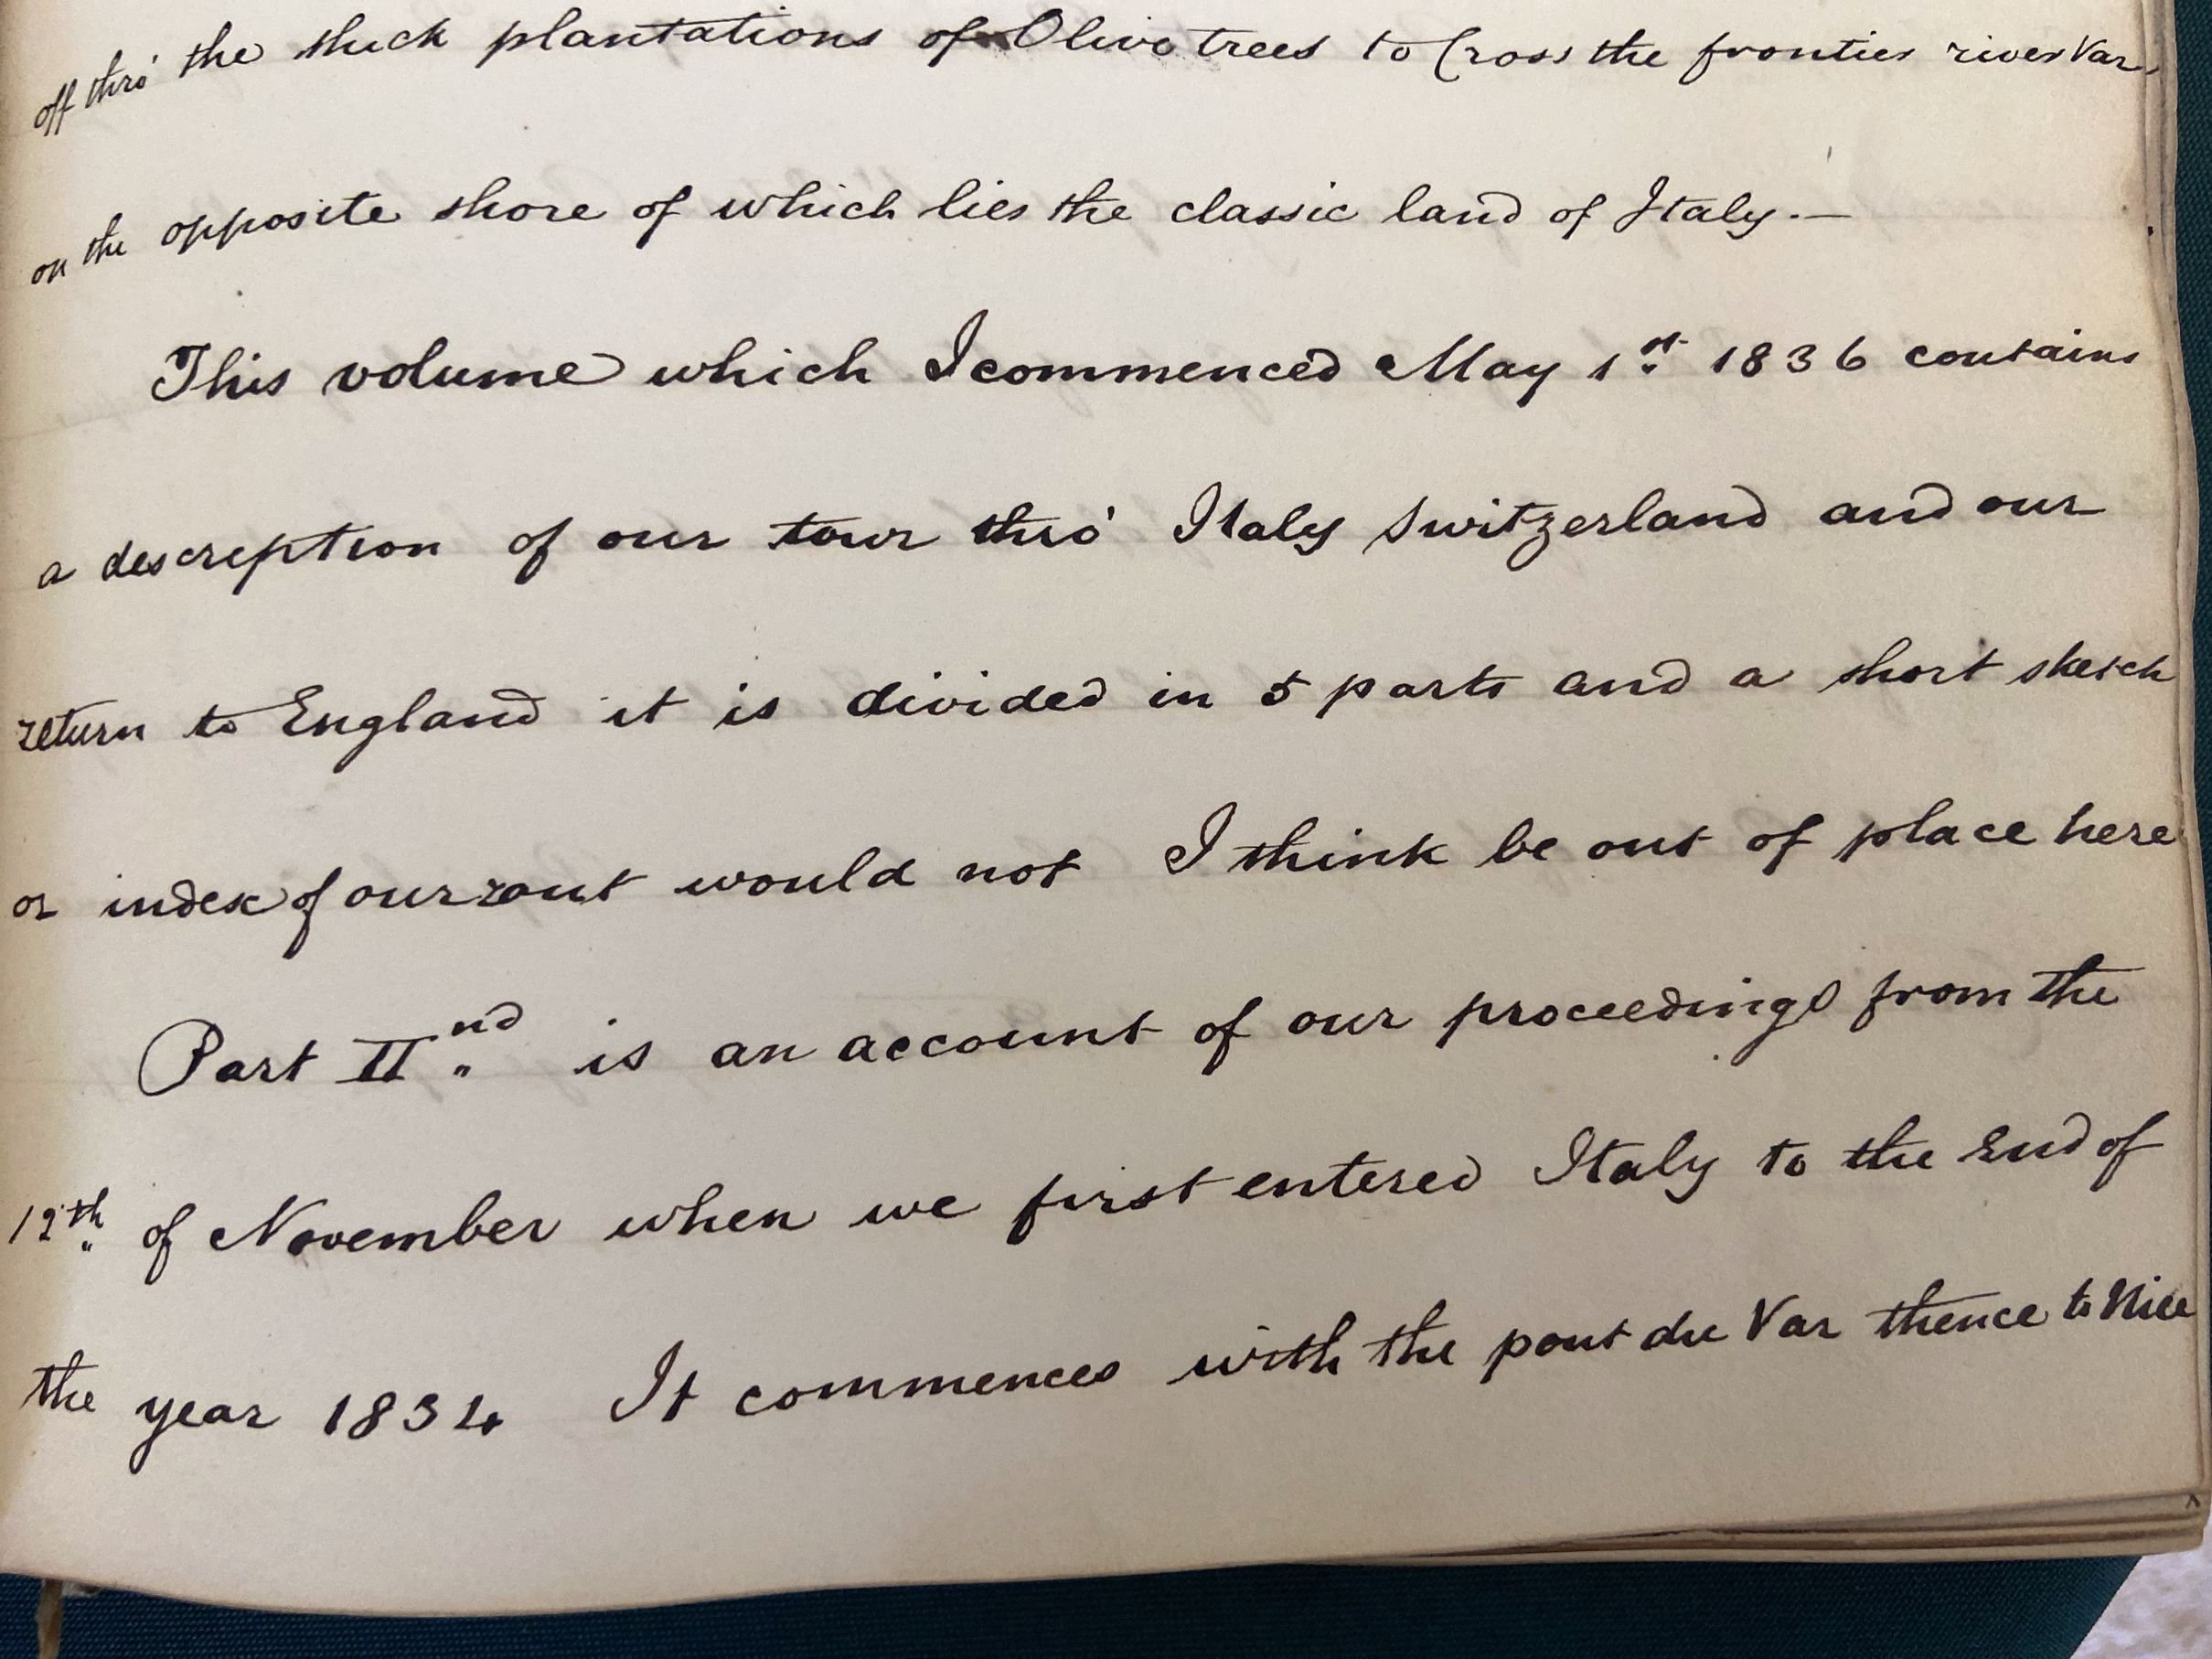 off thro' the thick plantations of Olive trees to Cross the frontier river Var,
on the opposite shore of which lies the classic land of Italy.—
This volume which I commenced May 1st. 1836 contains
a description of our tour thro' Italy Switzerland and our
return to England it is divided in 5 parts and a short sketch
or index of our rout would not I think be out of place here
Part IInd is an account of our proceedings from the
12th of November when we first entered Italy to the End of
the year 1834 It commences with the pont du Var thence to Nice